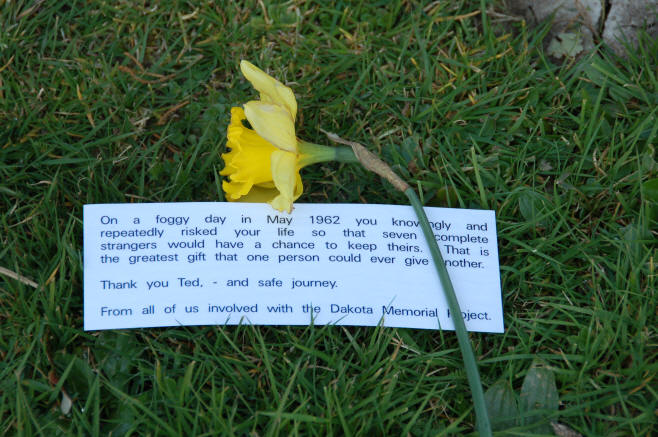 On a foggy day in May 1962 you knowingly and
repeatedly risked your life so that seven complete
strangers would have a chance to keep theirs. That is
the greatest gift that one person could ever give another.
Thank you Ted, - and safe journey.
From all of us involved with the Dakota Memorial Project.